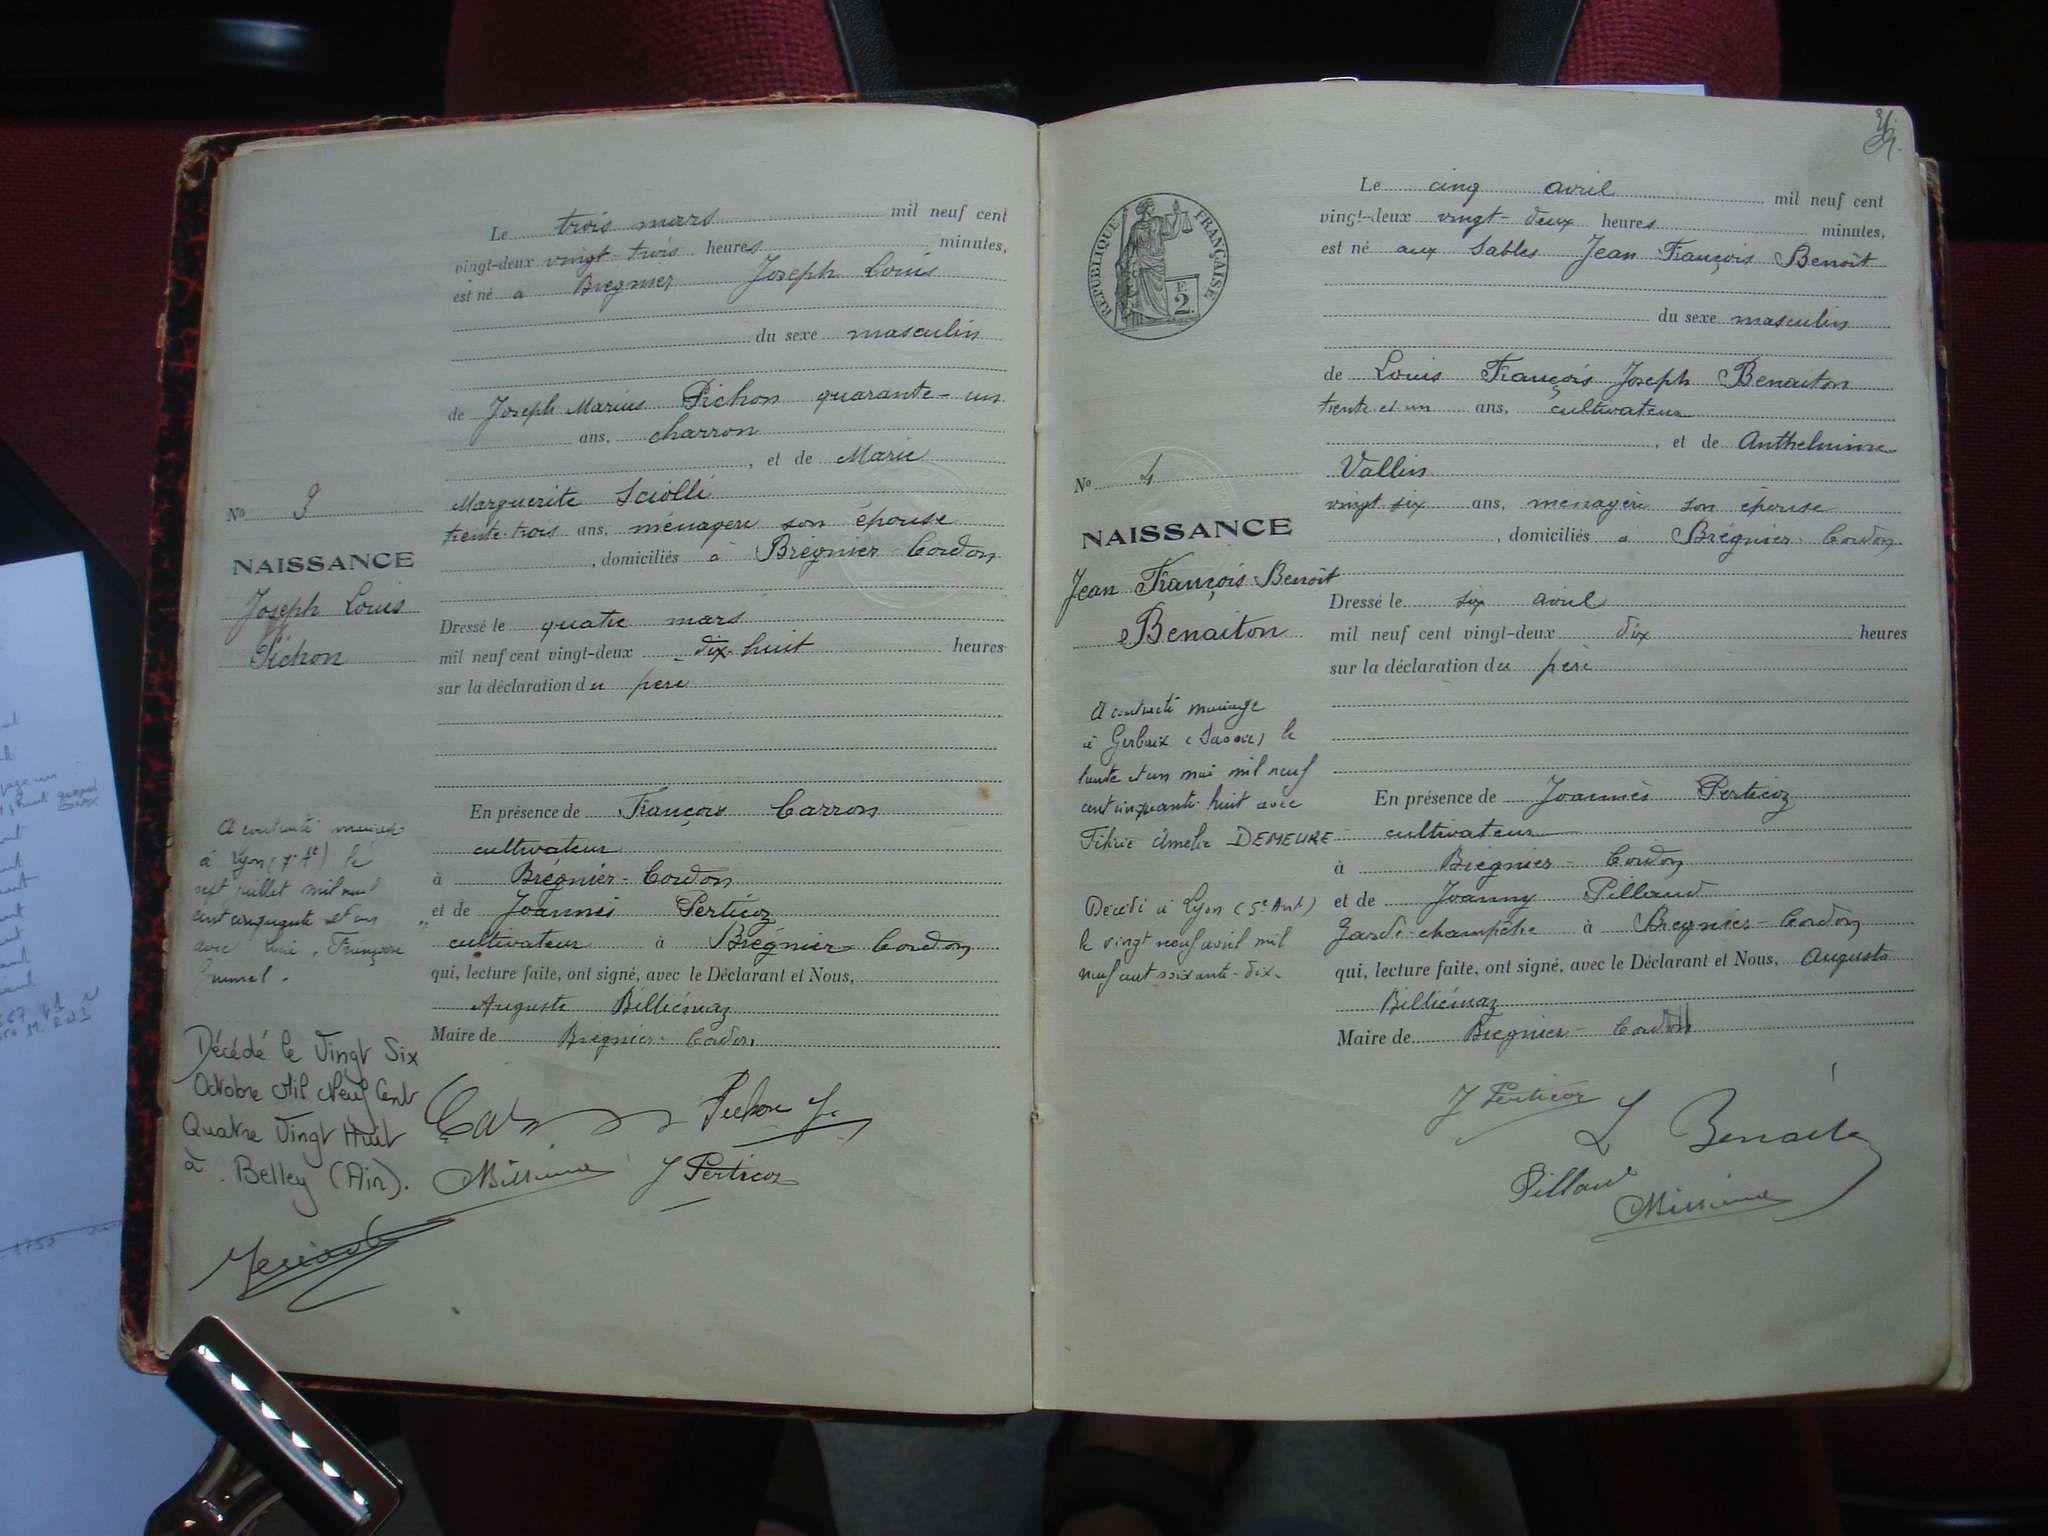 Le trois mars mil neuf cent
vingt-deux vingt-trois heures minutes,
est né a Brégnier Joseph Louis
du sexe masculin
de Joseph Marius Pichon quarante-un
ans, charron
, et de Marie
Marguerite Sciolli
trente-trois ans, ménagère son épouse
, domiciliés à Brégnier-Cordon
Nº 3
NAISSANCE
Joseph Louis
Pichon
Dressé le quatre mars
mil neuf cent vingt-deux dix-huit heures
sur la déclaration du père
En présence de François Carron
cultivateur
à Brégnier-Cordon
et de Joannès Perticoz
cultivateur à Brégnier-Cordon
qui, lecture faite, ont signé, avec le Déclarant et Nous,
Auguste Billiémaz
Maire de Brégnier-Cordon
A contracté mariage
à Lyon (7e) le
sept juillet mil neuf
cent cinquante et un
avec Françoise
Décédé le Vingt Six
Octobre Mil Neuf Cent
Quatre Vingt Huit
à Belley (Ain).
Pichon J.
J Perticoz
RÉPUBLIQUE FRANÇAISE
F.
2.
Le cinq avril mil neuf cent
vingt-deux vingt-deux heures minutes,
est né aux Sables Jean François Benoît
du sexe masculin
de Louis François Joseph Benaiton
trente et un ans, cultivateur
, et de Anthelmine
Vallin
vingt six ans, ménagère son épouse
, domiciliés à Brégnier-Cordon
Nº 4
NAISSANCE
Jean François Benoît
Benaiton
Dressé le six avril
mil neuf cent vingt-deux dix heures
sur la déclaration du père
En présence de Joannès Perticoz
cultivateur
à Brégnier-Cordon
et de Joanny Pillaud
Garde-champêtre à Brégnier-Cordon
qui, lecture faite, ont signé, avec le Déclarant et Nous, Auguste
Billiémaz
Maire de Brégnier-Cordon
A contracté mariage
à Gerbaix (Savoie) le
trente et un mai mil neuf
cent cinquante-huit avec
Amélie DEMEURE
Décédé à Lyon (5e Art)
le vingt neuf avril mil
neuf cent soixante-dix.
J Perticoz
L Benaiton
Pillaud